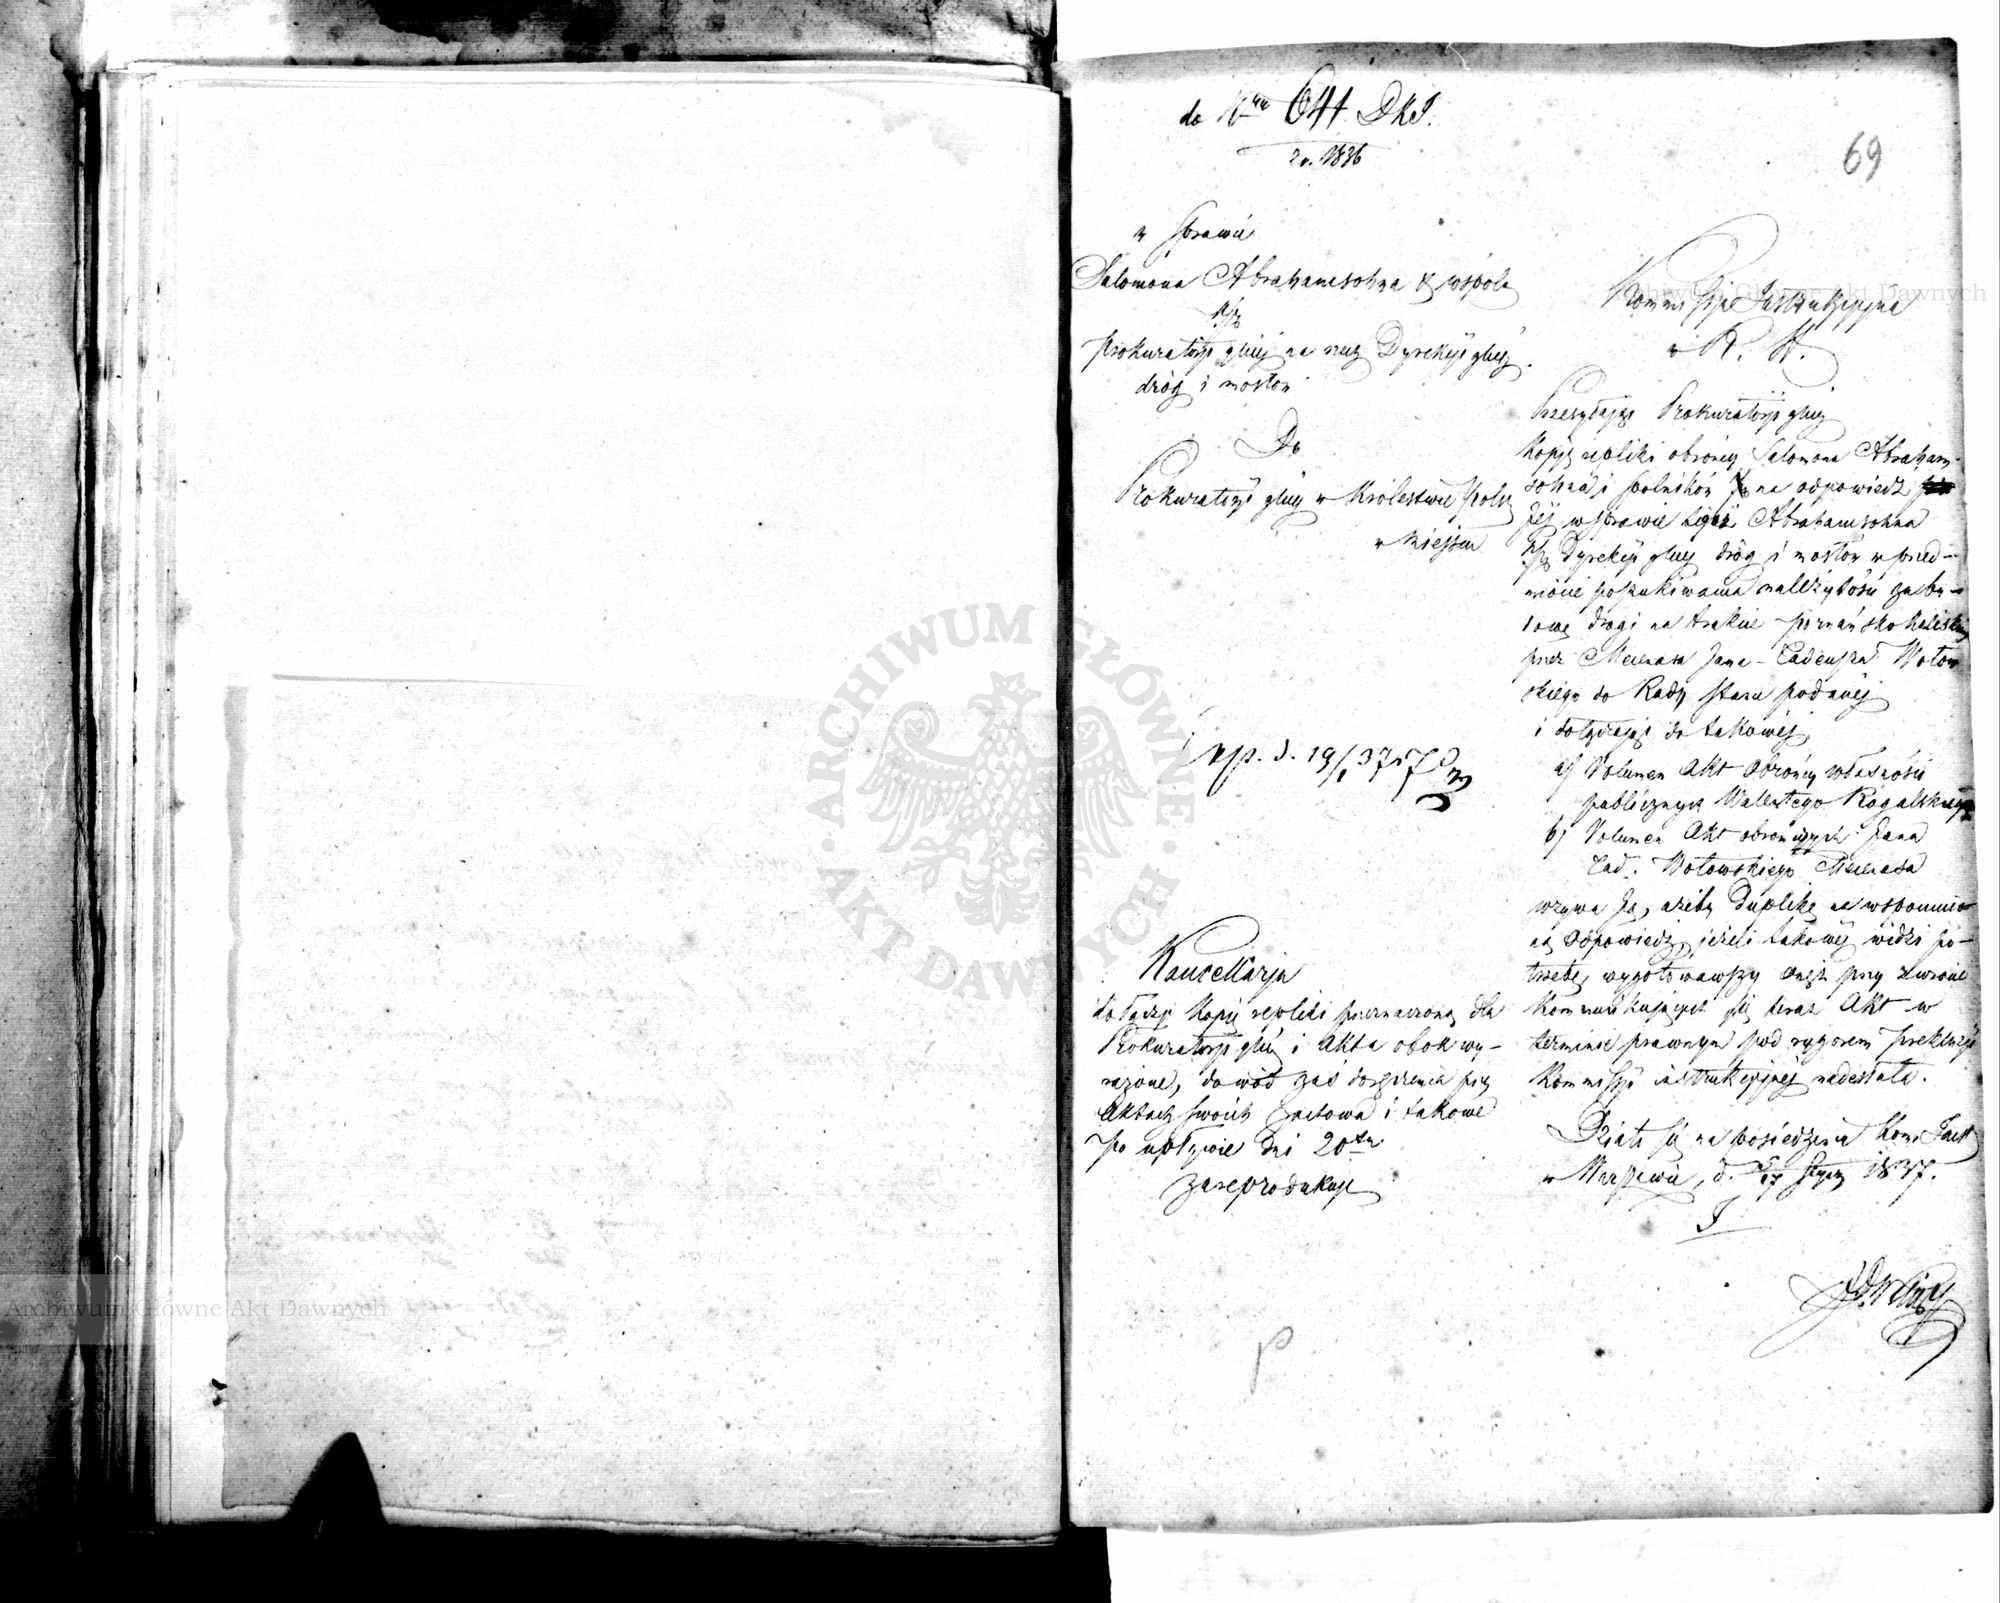 do Nru 641. DKS.
z r. 1836
69
w Sprawie
Salomona Abrahamsohna & wspola
p/ko
Prokuratoryi głnej na rzecz Dyrekcyi głnej
dróg i mostów
Do
Prokuratoryi głnej w Królestwie Polsk
w miejscu
exp. d. 19/1 37
Kancellarja
dołączy kopię repliki przeznaczoną dla
Prokuratoryi głnej i Akta obok wy-
rażone, dowód zaś doręczenia przy
Aktach swoich zachowa i takowe
po upływie dni 20tu
zareprodukuje
Kommissja Instrukcyjna
w R. S.
Przesyłając Prokuratoryi głnej
kopję repliki obrońcy Salomona Abraham-
sohna i spolników na odpowiedź
jéj w sprawie tegoż Abrahamsohna
p/ko Dyrekcyi głnej dróg i mostów w przed-
miocie poszukiwania należytości za bu-
dowę drogi na trakcie poznańsko Kaliskim
przez Mecenasa Jana-Tadeusza Wołow
skiego do Rady Stanu podanéj
i dołączając do takowéj
a) Volumen Akt Obrońcy własności
publicznych Walentego Rogalskiego
b) Volumen Akt obrończych Jana
Tad. Wołowskiego Mecenasa
wzywa Ją, ażeby Duplikę na wspomnio-
ną odpowiedz, jeżeli takowéj widzi po-
trzebę, wygotowawszy onęż przy zwrocie
kommunikujących się teraz Akt w
terminie prawnym pod rygorem prekluzji
Kommissji instrukcyjnej nadesłała.
Działo się na posiedzeniu Kom: Instr
w Warszawie, d. 5/17 Stycz 1837.